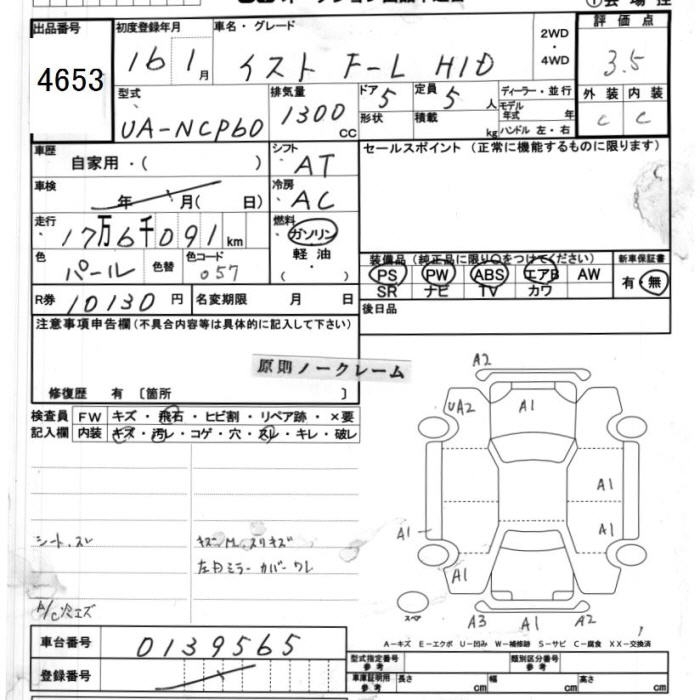 出品番号 初度登録年月 車名・グレード 2WD・4WD 評価点
4653 16 1月 イスト F-L HID 3.5
型式 排気量 ドア 5 定員 5人 ディーラー・並行 外装 内装
UA-NCP60 1300cc 形状 積載 kg モデル年式 年 ハンドル 左・右 C C
車歴 自家用・( ) シフト AT セールスポイント（正常に機能するものに限ります）
車検 年 月( 日) 冷房 AC
走行 17万6千091km 燃料 ガソリン 軽油・( )
色 パール 色替 色コード 057
装備品（純正品に限り○をつけてください） 新車保証書
PS PW ABS エアB AW 有・無
SR ナビ TV カワ
R券 10130円 名変期限 月 日 後日品
注意事項申告欄(不具合内容等は具体的に記入して下さい)
原則ノークレーム
修復歴 有〔箇所 〕
検査員 FW キズ・飛石・ヒビ割・リペア跡・×要
記入欄 内装 キズ・汚レ・コゲ・穴・スレ・キレ・破レ
シート、スレ
キズM スリキズ
左ドミラーカバーワレ
A2
UA2
A1
A1
A1
A1
A1
A1
スペア
A3 A1 A2
A－キズ E－エクボ U－凹み W－補修跡 S－サビ C－腐食 XX－交換済
車台番号 0139565
登録番号
型式指定番号 参考 類別区分番号 参考
車庫証明用 参考 長さ cm 幅 cm 高さ cm